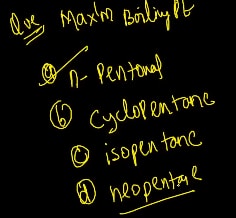 Que Max'm Boiling Pt
(a) n-Pentanal
(b) Cyclopentane
(c) isopentane
(d) neopentane